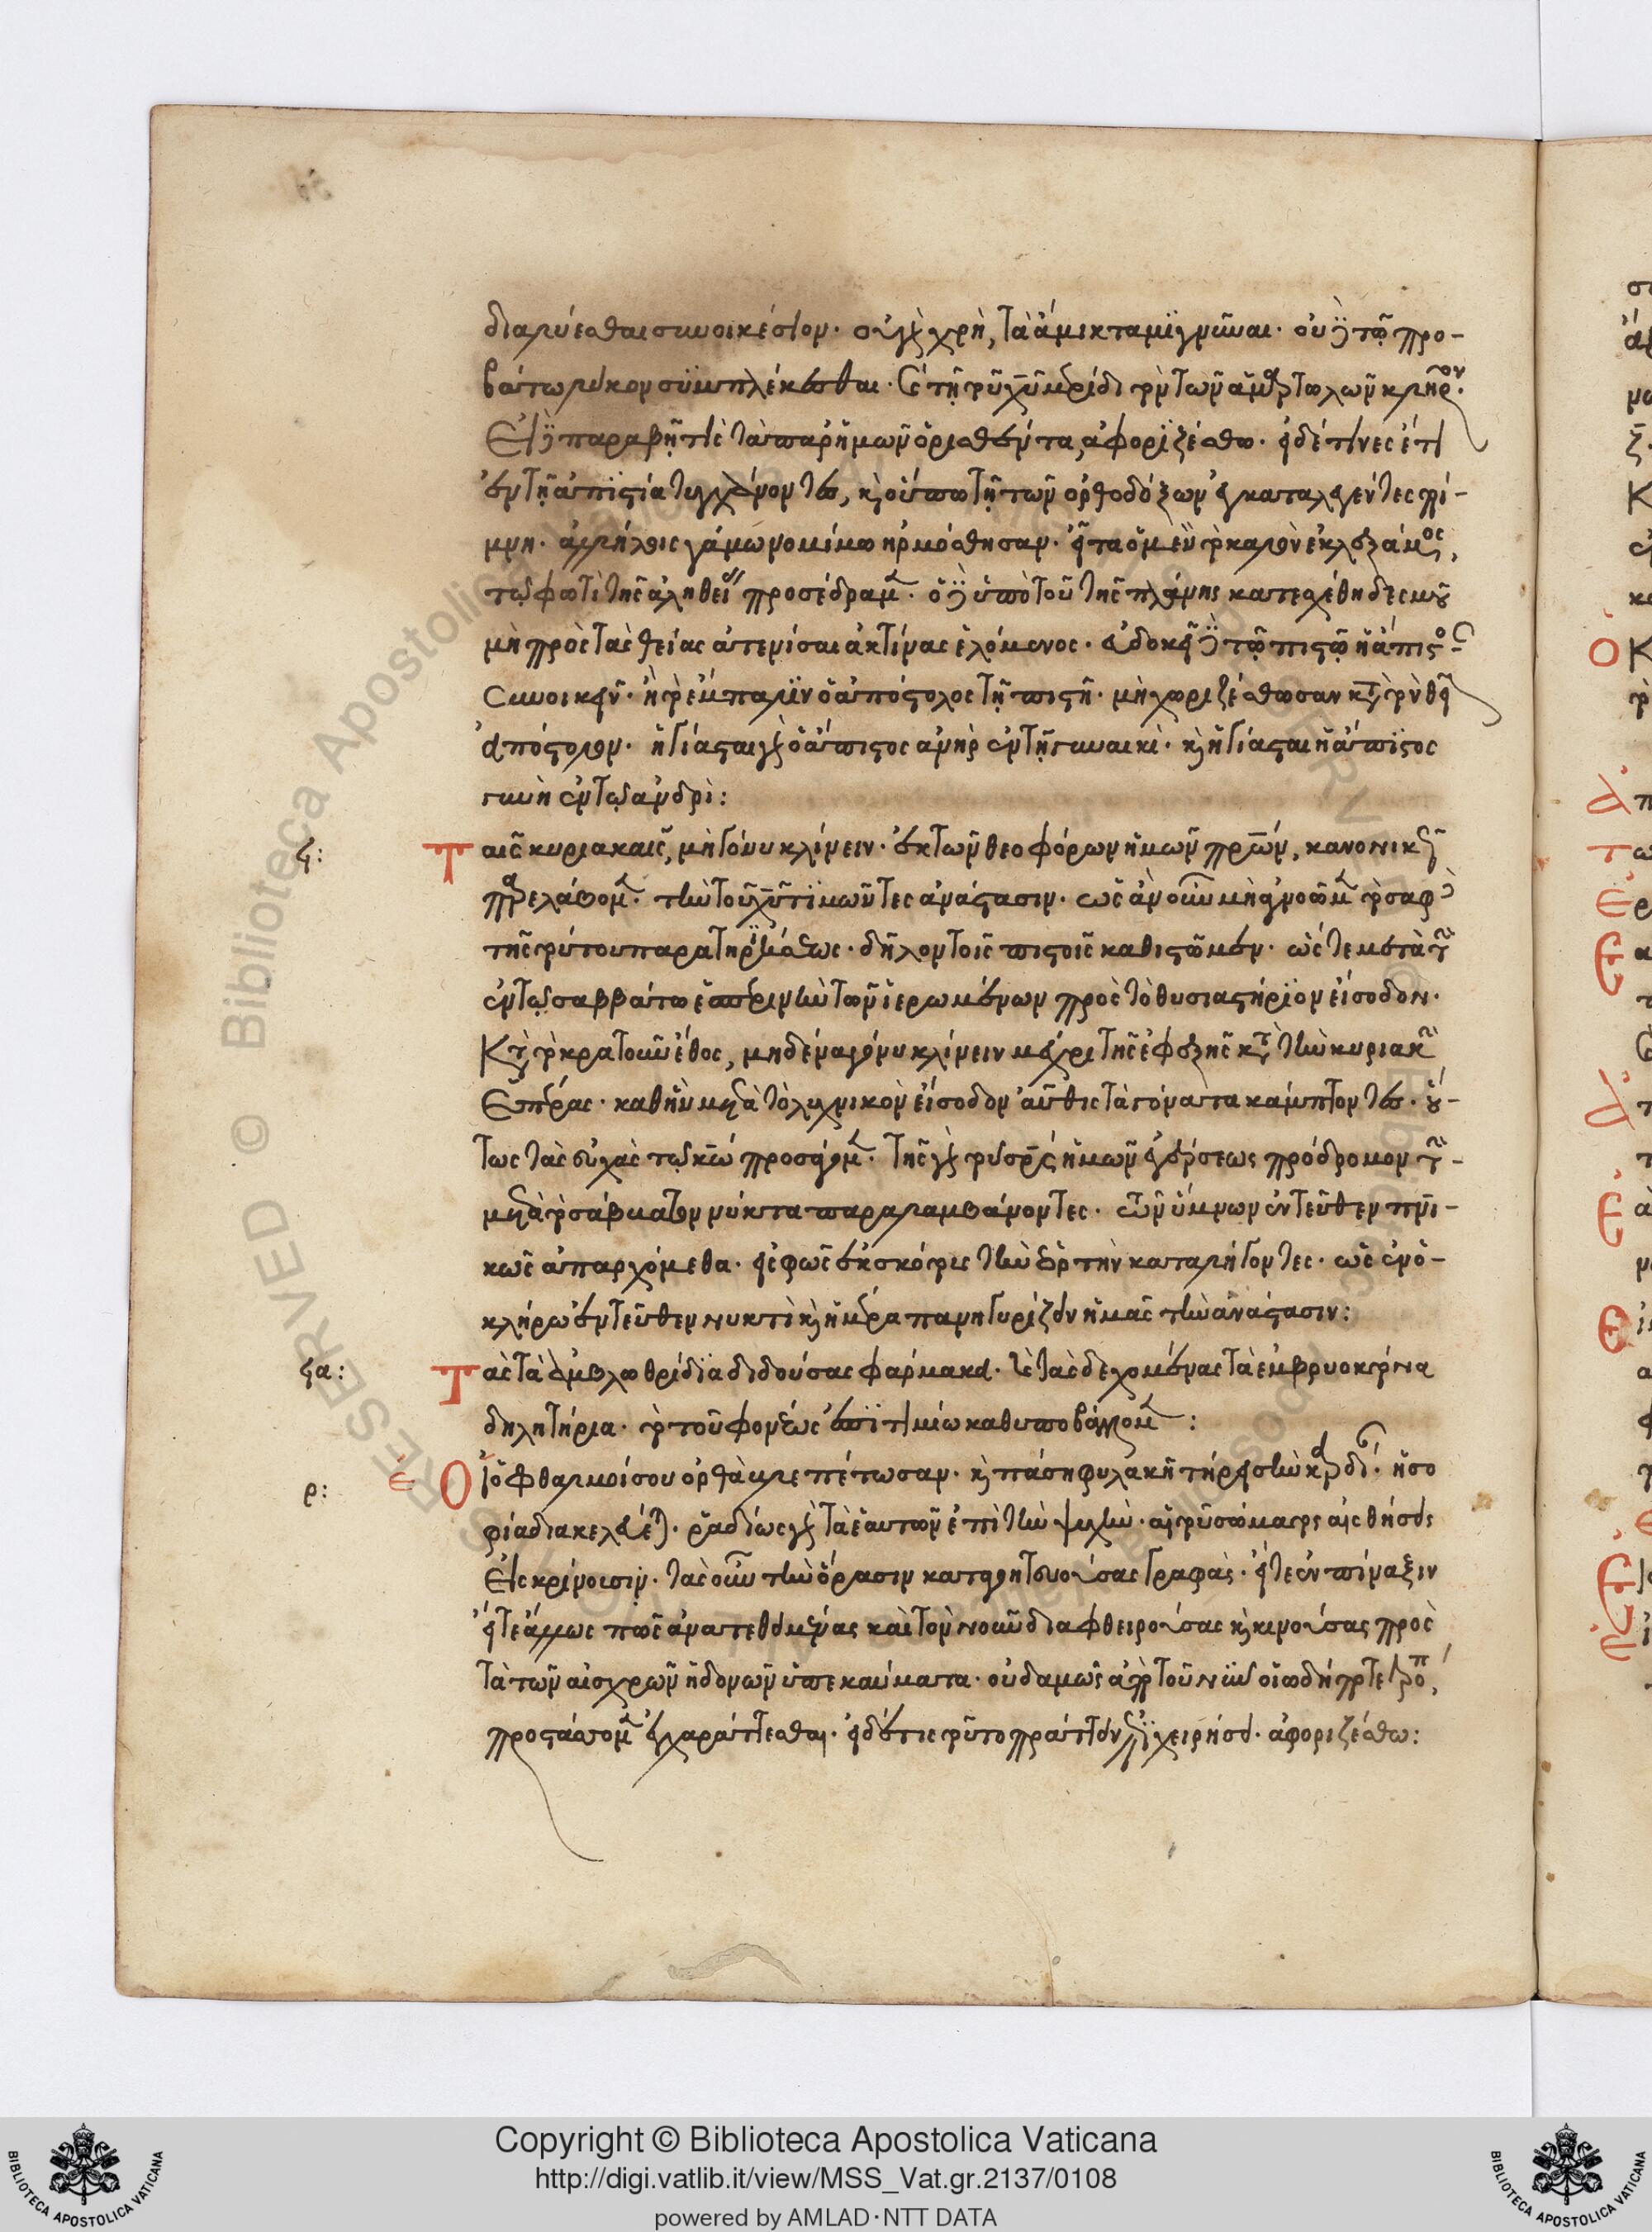 διαλύεσθαι συνοικέσιον· οὐ γὰρ χρὴ, τὰ ἄμικτα μϊγνῦναι· οὐ δὲ τῶ προ-
βάτω λύκον συμπλέκεσθαι· καὶ τῆ τοῦ χ̅υ̅ μερίδι τὸν τῶν ἁμαρτωλῶν κλῆρον·
Εἰ δὲ παραβῆ τὶς τὰ παρ' ἡμῶν ὁρισθέντα, ἀφοριζέσθω· εἰ δέ τινες ἔτι
ἐν τῆ ἀπιστία τυγχάνοντες, καὶ οὔπω τῆ τῶν ὀρθοδόξων ἐγκαταλεγέντες ποί-
μνη· ἀλλήλοις γάμω νομίμω ἡρμόσθησαν· εἶτα ὁ μὲν τὸ καλὸν ἐκλεξάμενος,
τῶ φωτὶ τῆς ἀληθείας προσέδραμεν· ὁ δὲ ὑπὸ τοῦ τῆς πλάνης κατεσχέθη δεσμοῦ
μὴ πρὸς τὰς θείας ἀτενίσαι ἀκτίνας ἑλόμενος· εὐδοκεῖ δὲ τῶ πιστῶ ἡ ἄπιστος
συνοικεῖν· ἢ τὸ ἐμπαλιν ὁ ἀπόστολος τῆ πιστῆ· μὴ χωριζέσθωσαν κατὰ τὸν θεῖον
ἀπόστολον· ἡγίασται γὰρ ὁ ἄπιστος ἀνὴρ ἐν τῆ γυναικὶ· καὶ ἡγίασται ἡ ἄπιστος
γυνὴ ἐν τῶ ἀνδρὶ:
ϟ: Ταῖς κυριακαῖς, μὴ γόνυ κλίνειν· ἐκ τῶν θεοφόρων ἡμῶν π̅ρ̅ω̅ν, κανονικῶς
παρελάβομεν· τὴν τοῦ χ̅υ̅ τιμῶντες ἀνάστασιν· ὡς ἂν οὖν μὴ ἀγνοῶμεν τὸ σαφὲς
τῆς τούτου παρατηρήσεως· δῆλον τοῖς πιστοῖς καθιστῶμεν· ὥστε μετὰ τὴν
ἐν τῶ σαββάτω ἑσπερινὴν τῶν ἱερωμένων πρὸς τὸ θυσιαστήριον εἴσοδον·
Κατὰ τὸ κρατοῦν ἔθος, μηδένα γόνυ κλίνειν μέχρι τῆς ἐφεξῆς κατὰ τὴν κυριακὴν
ἑσπέρας· καθ' ἣν μετὰ τὸ λυχνικὸν εἴσοδον αὖθις τὰ γόνατα κάμπτοντες· οὕ-
τως τὰς εὐχὰς τῶ κ̅ω̅ προσάγομεν· τῆς γὰρ τοῦ σ̅ρ̅ς ἡμῶν ἐγέρσεως πρόδρομον τὴν
μετὰ τὸ σάββατον νύκτα παραλαμβάνοντες· τῶν ὕμνων ἐντεῦθεν π̅ν̅ι-
κῶς ἀπαρχόμεθα· εἰς φῶς ἐκ σκότους τὴν ἑορτὴν καταλήγοντες· ὡς ἐν ὁ-
κλήρω ἐντεῦθεν νυκτὶ καὶ ἡμέρα πανηγυρίζειν ἡμᾶς τὴν ἀνάστασιν:
ϟα: Τὰς τὰ ἀμβλωθρίδια διδούσας φάρμακα· καὶ τὰς δεχομένας τὰ ἐμβρυοκτόνα
δηλητήρια· τῶ τοῦ φονέως ἐπιτιμίω καθυποβάλλομεν:
ρ: Οἱ ὀφθαλμοί σου ὀρθὰ βλεπέτωσαν· καὶ πάση φυλακῆ τήρει σὴν καρδίαν· ἡ σο
φία διακελεύεται· ῥαδίως γὰρ τὰ ἑαυτῶν ἐπὶ τὴν ψυχὴν· αἱ τοῦ σώματος αἰσθήσεις
εἰσκρίνουσιν· τὰς οὖν τὴν ὅρασιν καταγοητευούσας γραφὰς· εἴτε ἐν πίναξιν
εἴτε ἄλλως πως ἀνατεθειμένας καὶ τὸν νοῦν διαφθειρούσας καὶ κινούσας πρὸς
τὰ τῶν αἰσχρῶν ἡδονῶν ὑπεκκαύματα· οὐδαμῶς ἀπὸ τοῦ νῦν οἱωδήποτε τρόπω,
προστάσσομεν ἐγχαράττεσθαι· εἰ δέ τις τοῦτο πράττειν ἐπιχειρήσει· ἀφοριζέσθω:
Copyright © Biblioteca Apostolica Vaticana
http://digi.vatlib.it/view/MSS_Vat.gr.2137/0108
powered by AMLAD·NTT DATA